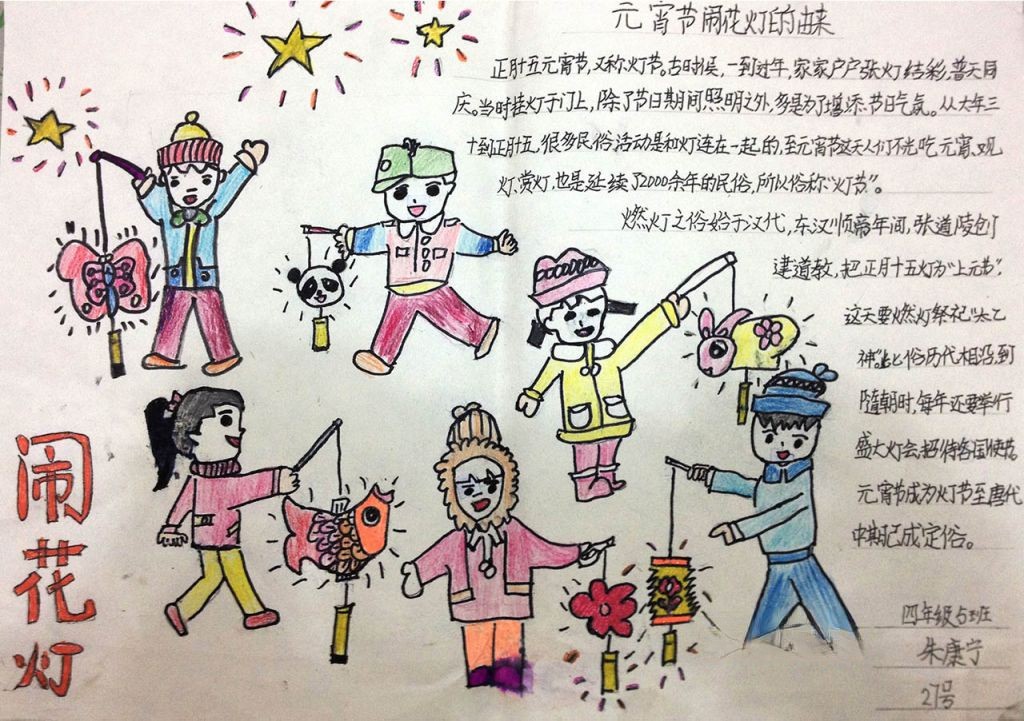 元宵节闹花灯的由来
正月十五元宵节,又称灯节。古时候,一到过年,家家户户张灯结彩,普天同
庆。当时挂灯于门上,除了节日期间照明之外,多是为了增添节日气氛。从大年三
十到正月十五,很多民俗活动是和灯连在一起的,至元宵节这天人们不光吃元宵、观
灯、赏灯,也是延续了2000余年的民俗,所以俗称“灯节”。
燃灯之俗始于汉代,东汉顺帝年间,张道陵创
建道教,把正月十五灯为“上元节”.
这天要燃灯祭祀“太乙
神”。此俗历代相沿,到
隋朝时,每年还要举行
盛大灯会,招待各国使节。
元宵节成为灯节至唐代
中期已成定俗。
闹
花
灯
四年级5班
朱康宁
21号